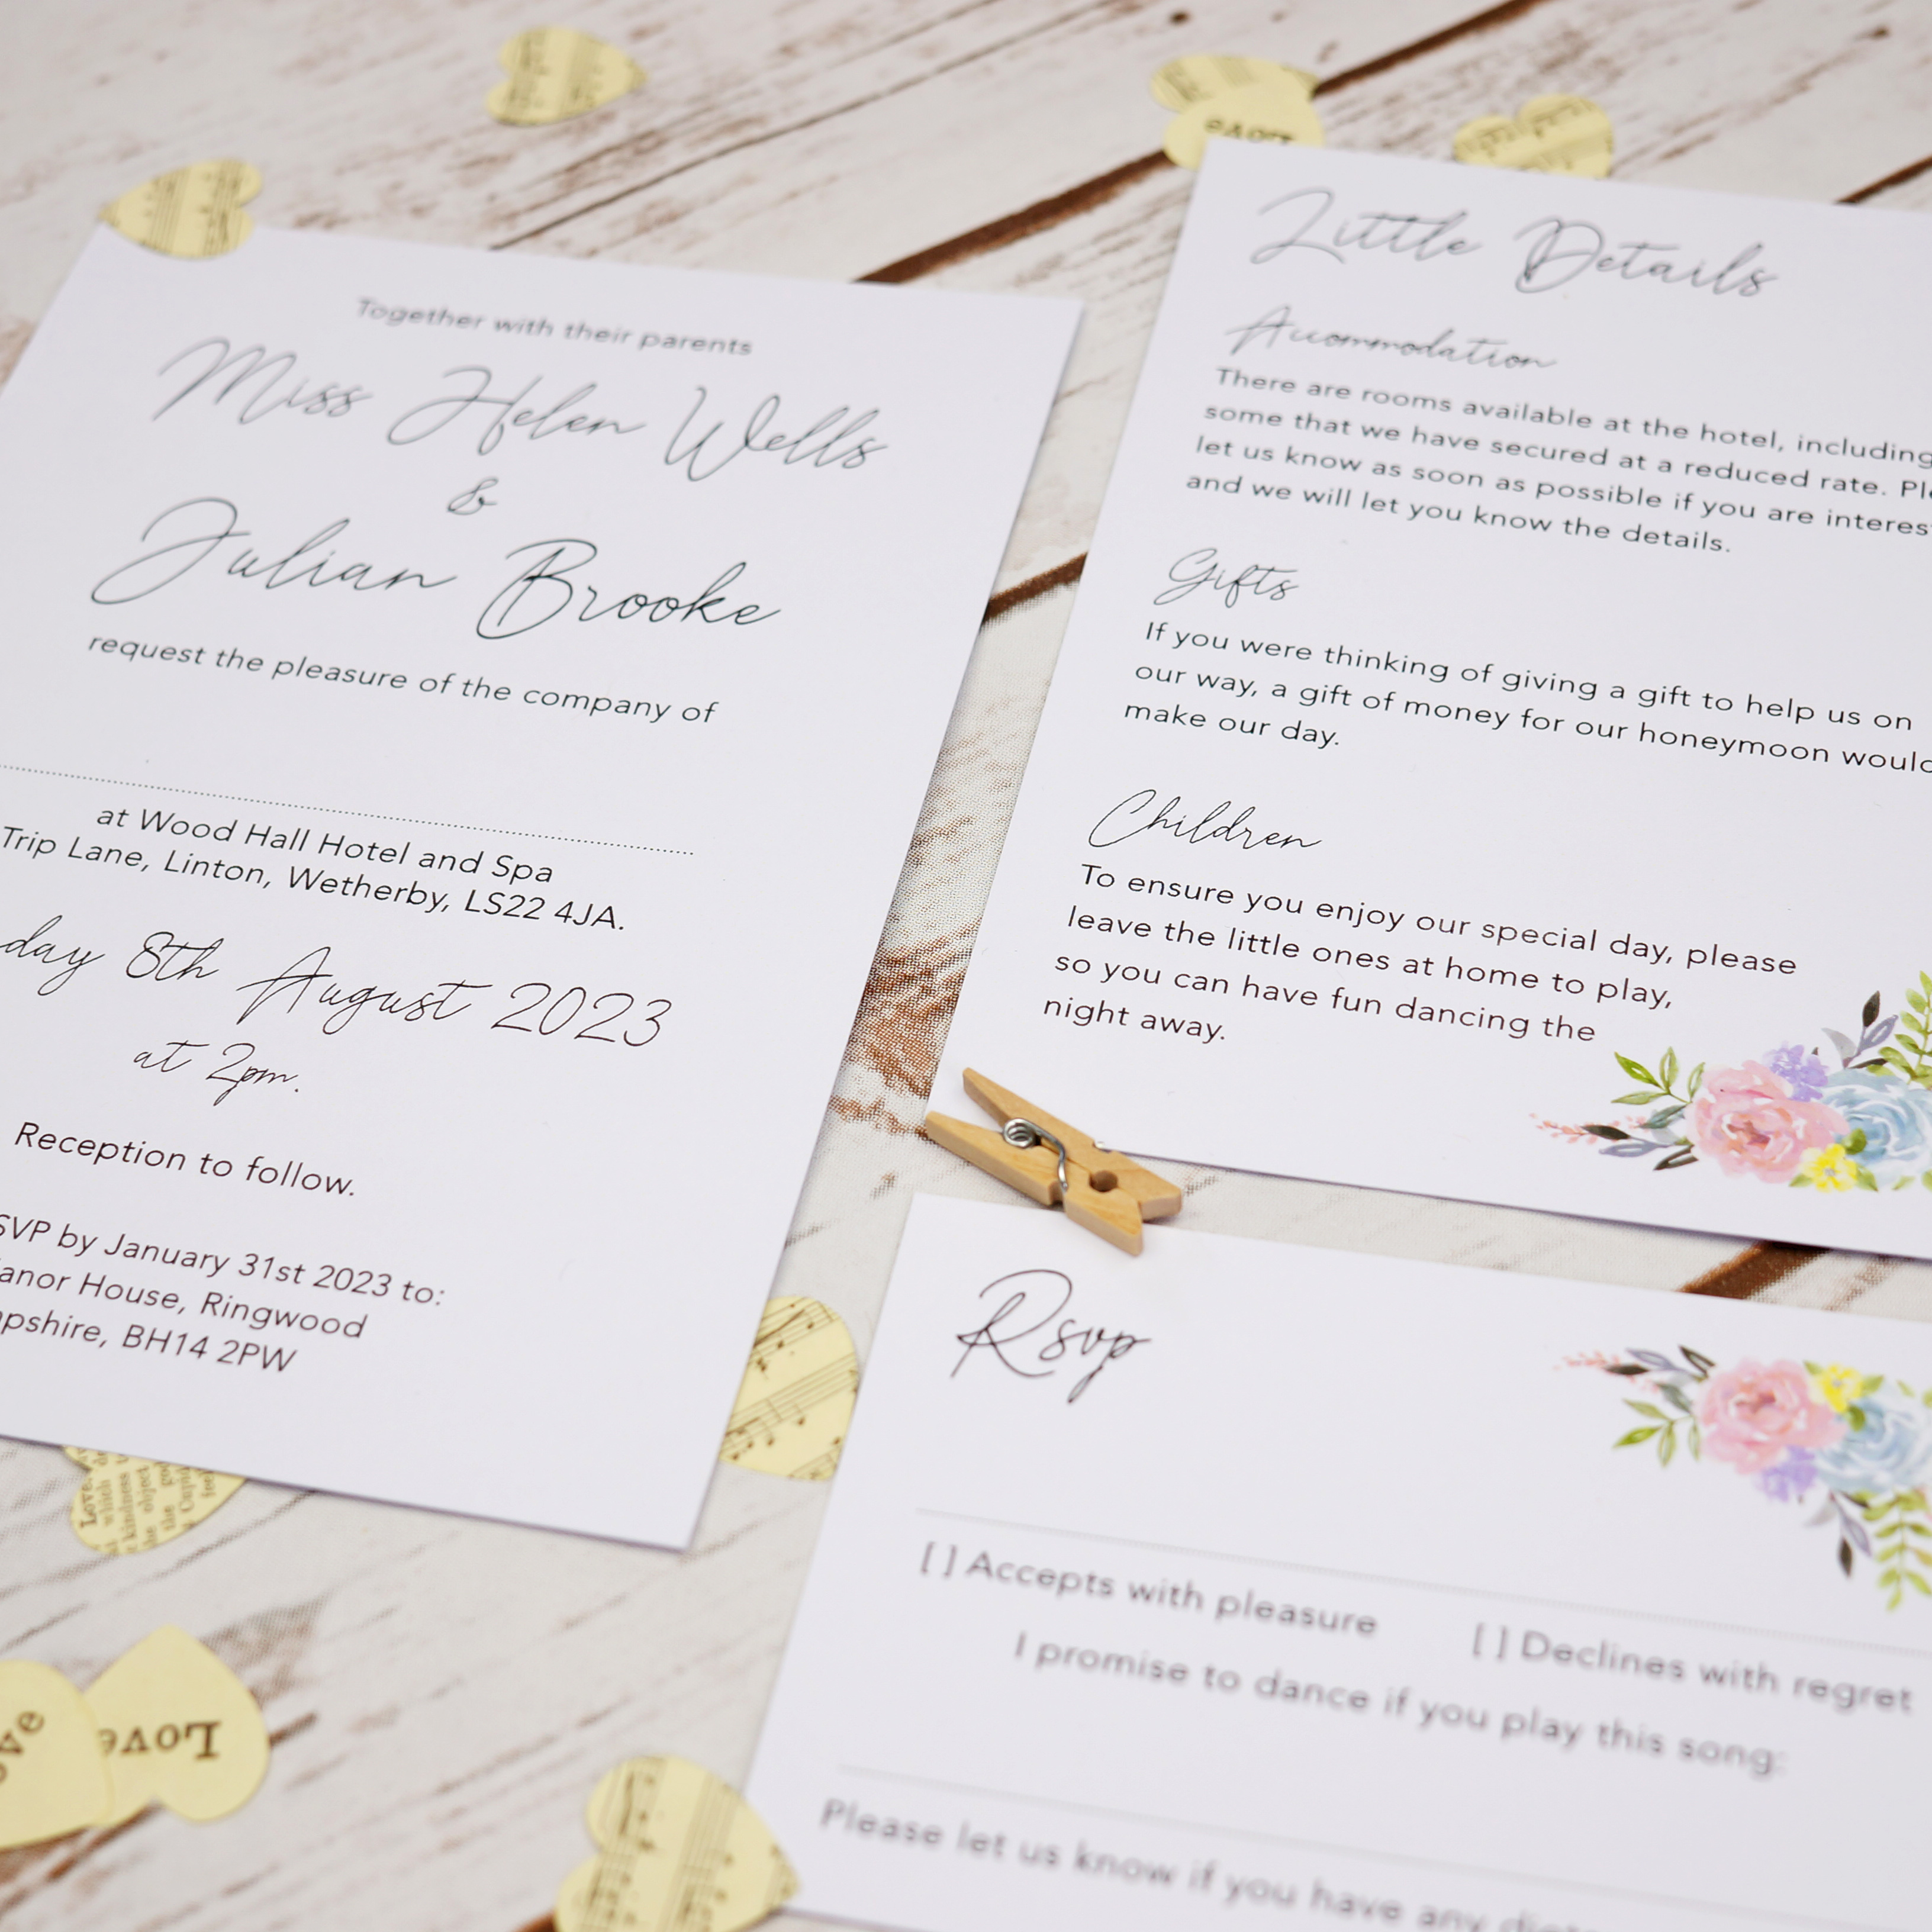 Together with their parents
Miss Helen Wells
&
Julian Brooke
request the pleasure of the company of
at Wood Hall Hotel and Spa
Trip Lane, Linton, Wetherby, LS22 4JA.
day 8th August 2023
at 2pm.
Reception to follow.
SVP by January 31st 2023 to:
anor House, Ringwood
pshire, BH14 2PW
Little Details
Accommodation
There are rooms available at the hotel, including
some that we have secured at a reduced rate. Ple
let us know as soon as possible if you are interes
and we will let you know the details.
Gifts
If you were thinking of giving a gift to help us on
our way, a gift of money for our honeymoon would
make our day.
Children
To ensure you enjoy our special day, please
leave the little ones at home to play,
so you can have fun dancing the
night away.
Rsvp
[ ] Accepts with pleasure [ ] Declines with regret
I promise to dance if you play this song:
Please let us know if you have any
Love